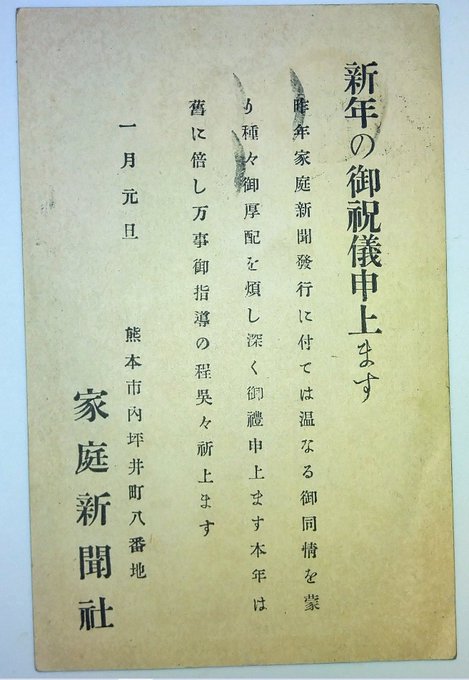 新年の御祝儀申上ます
昨年家庭新聞發行に付ては温なる御同情を蒙
り種々御厚配を煩し深く御禮申上ます本年は
舊に倍し万事御指導の程呉々祈上ます
一月元旦
熊本市內坪井町八番地
家庭新聞社